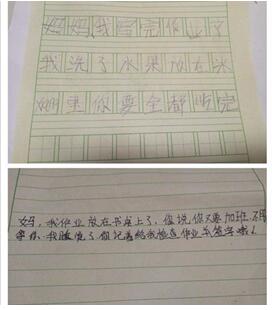 妈妈,我写完作业了
我洗了水果放在冰
箱里你要全部吃完
妈,我作业放在书桌上了,你说你又要加班,不用
我睡觉了你记着给我检查作业并签字哦!